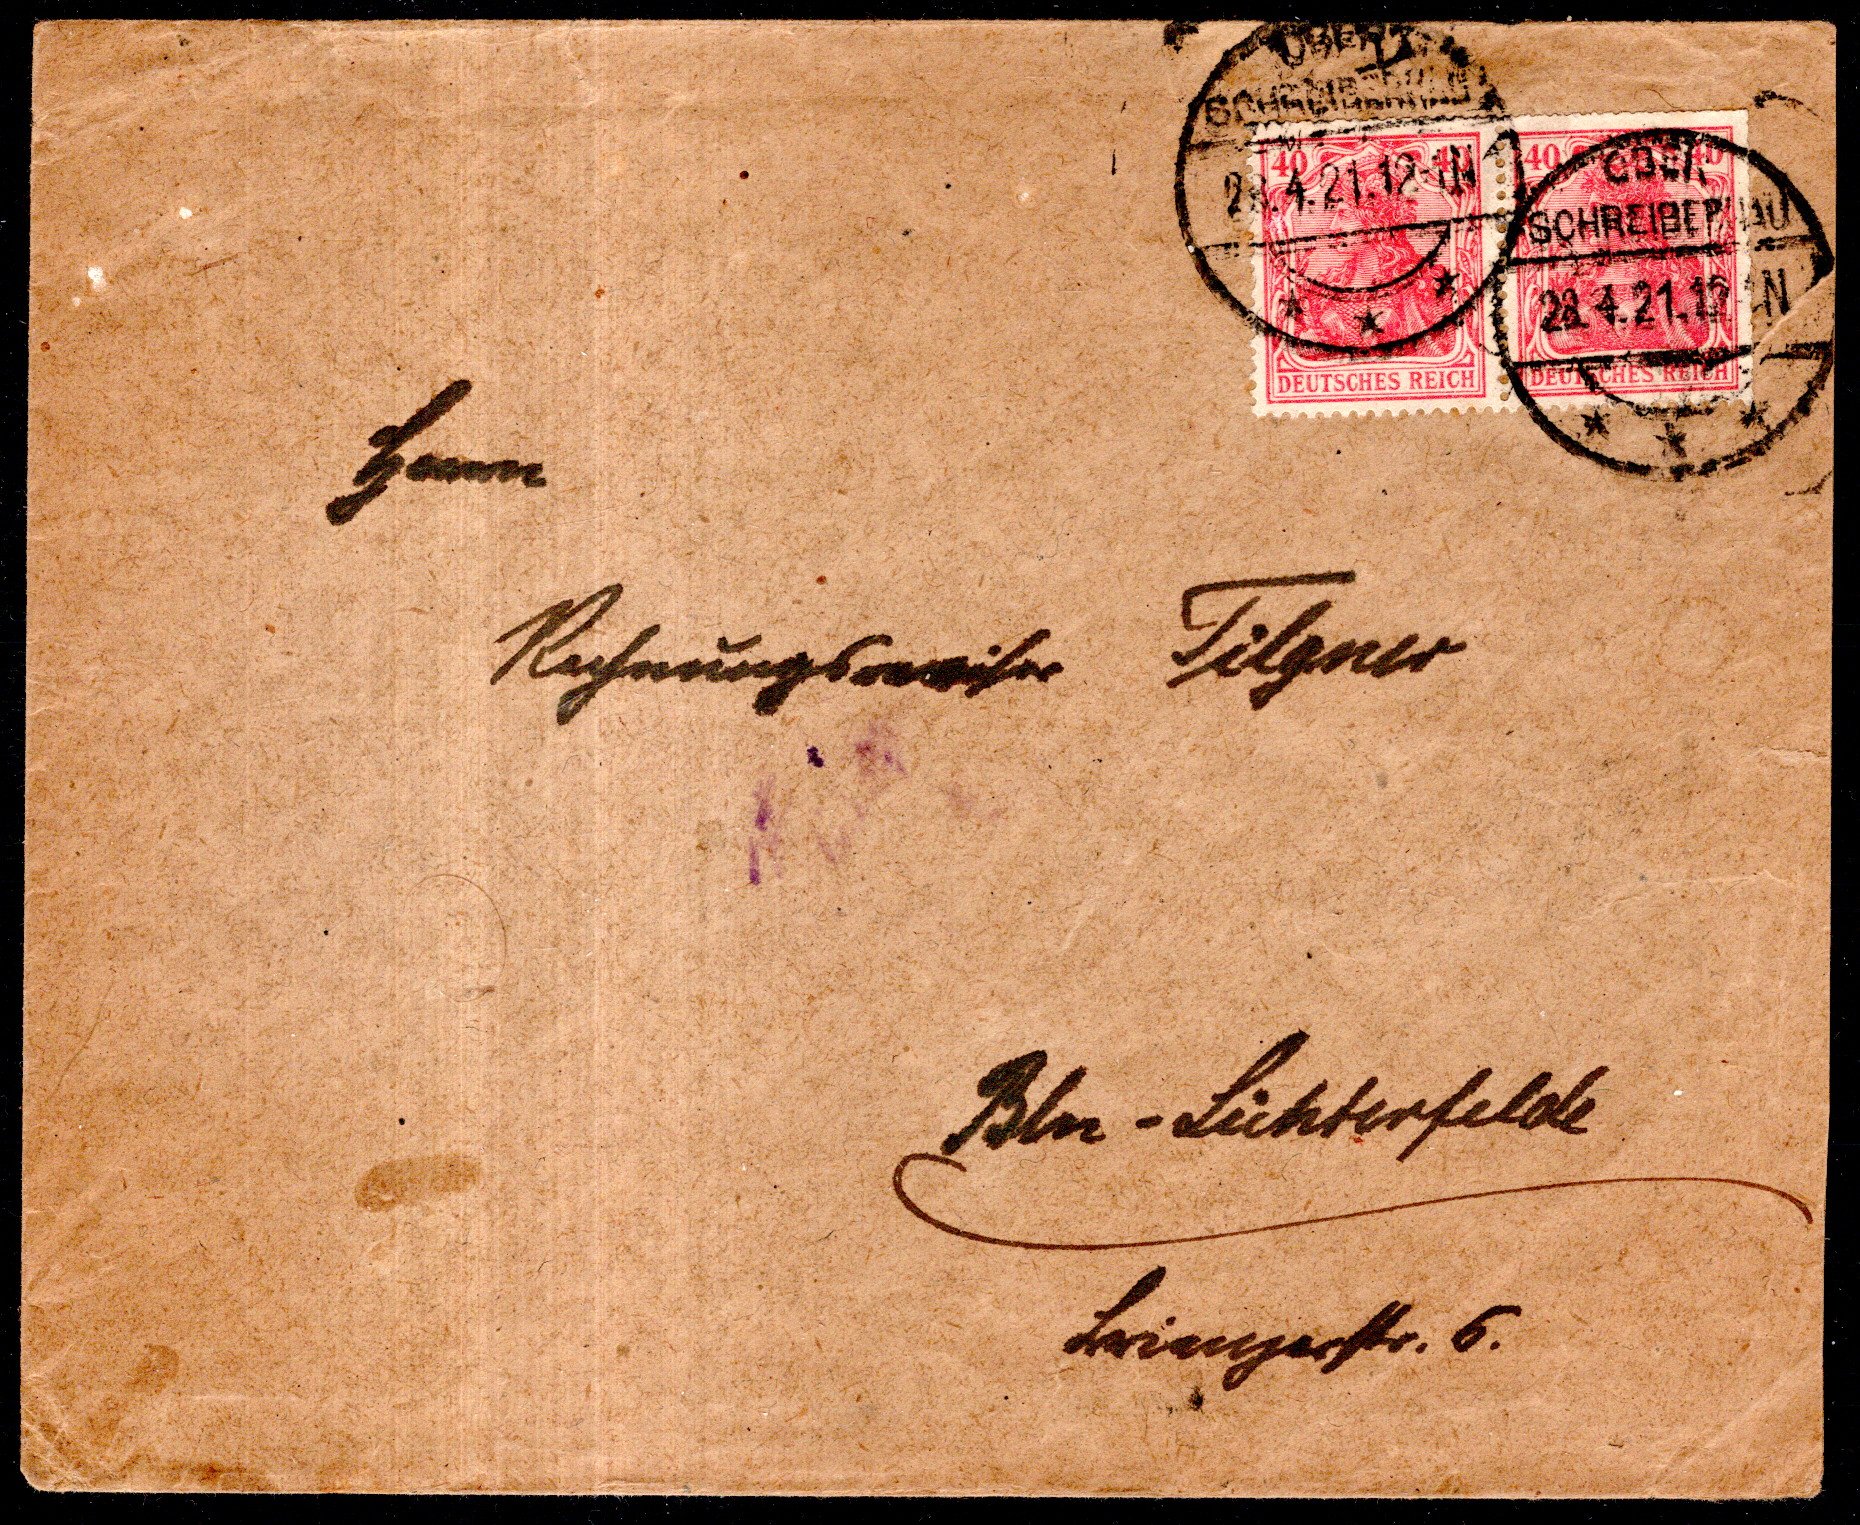 OBER
SCHREIBERHAU
28.4.21.12-1N
40 40
DEUTSCHES REICH
OBER
SCHREIBERHAU
28.4.21.12-1N
40 40
DEUTSCHES REICH
Herrn
Rechnungsrevisor Tilgner
Bln-Lichterfelde
6.